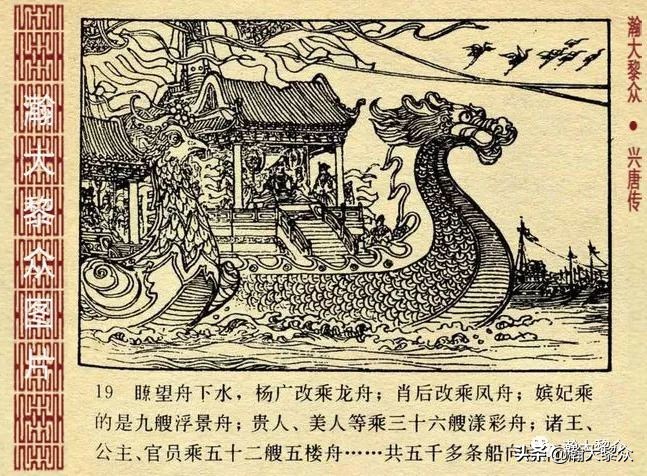 瀚大黎众图片
瀚大黎众 • 兴唐传
19 瞭望舟下水，杨广改乘龙舟；肖后改乘凤舟；嫔妃乘
的是九艘浮景舟；贵人、美人等乘三十六艘漾彩舟；诸王、
公主、官员乘五十二艘五楼舟……共五千多条船向
瀚大黎众
头条 @瀚大黎众